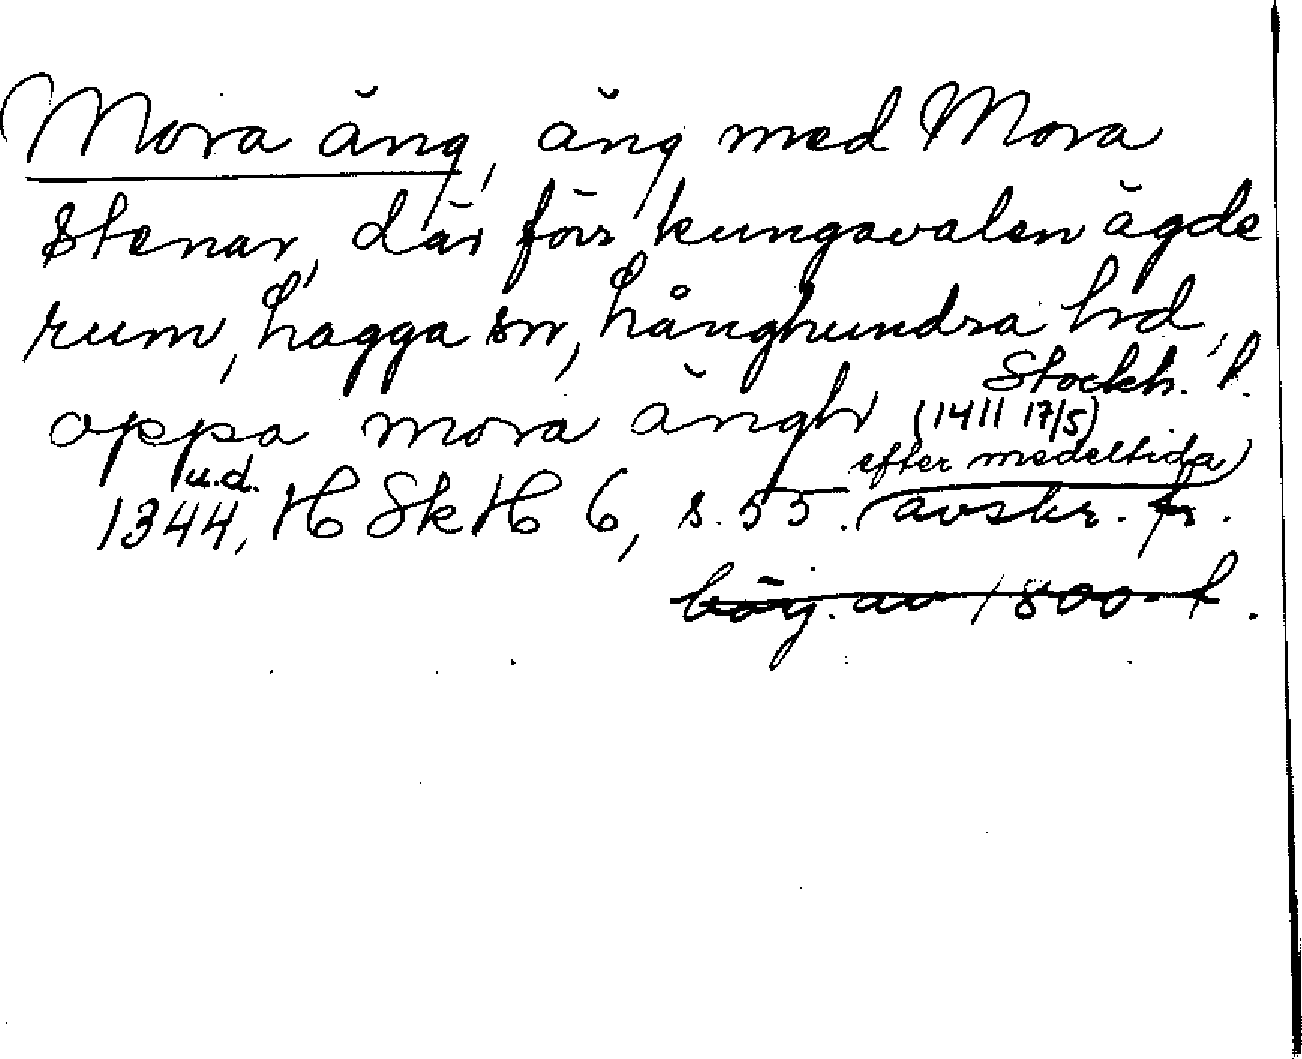 Mora äng, äng med Mora
stenar, där förr kungavalen ägde
rum, Lagga sn, Långhundra hd,
Stockh. l.
oppa mora ängh (1411 17/5)
u.d. efter medeltida)
1344, H Sk H 6, s. 55. avskr. fr.
börj. av 1800-t.